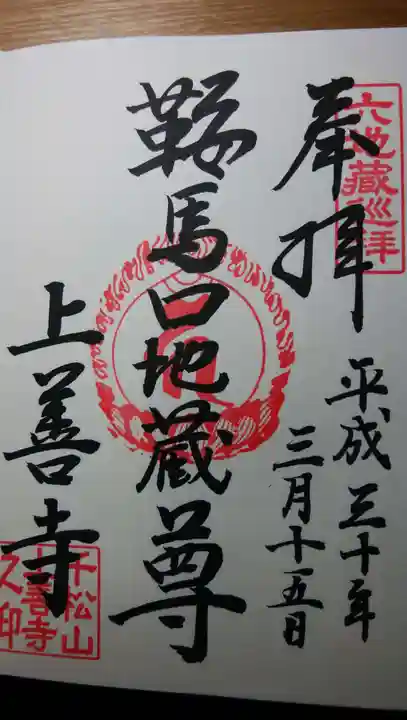 六地蔵巡拝
奉拝
平成三十年
三月十五日
鞍馬口地蔵尊
上善寺
千松山
上善寺
之印